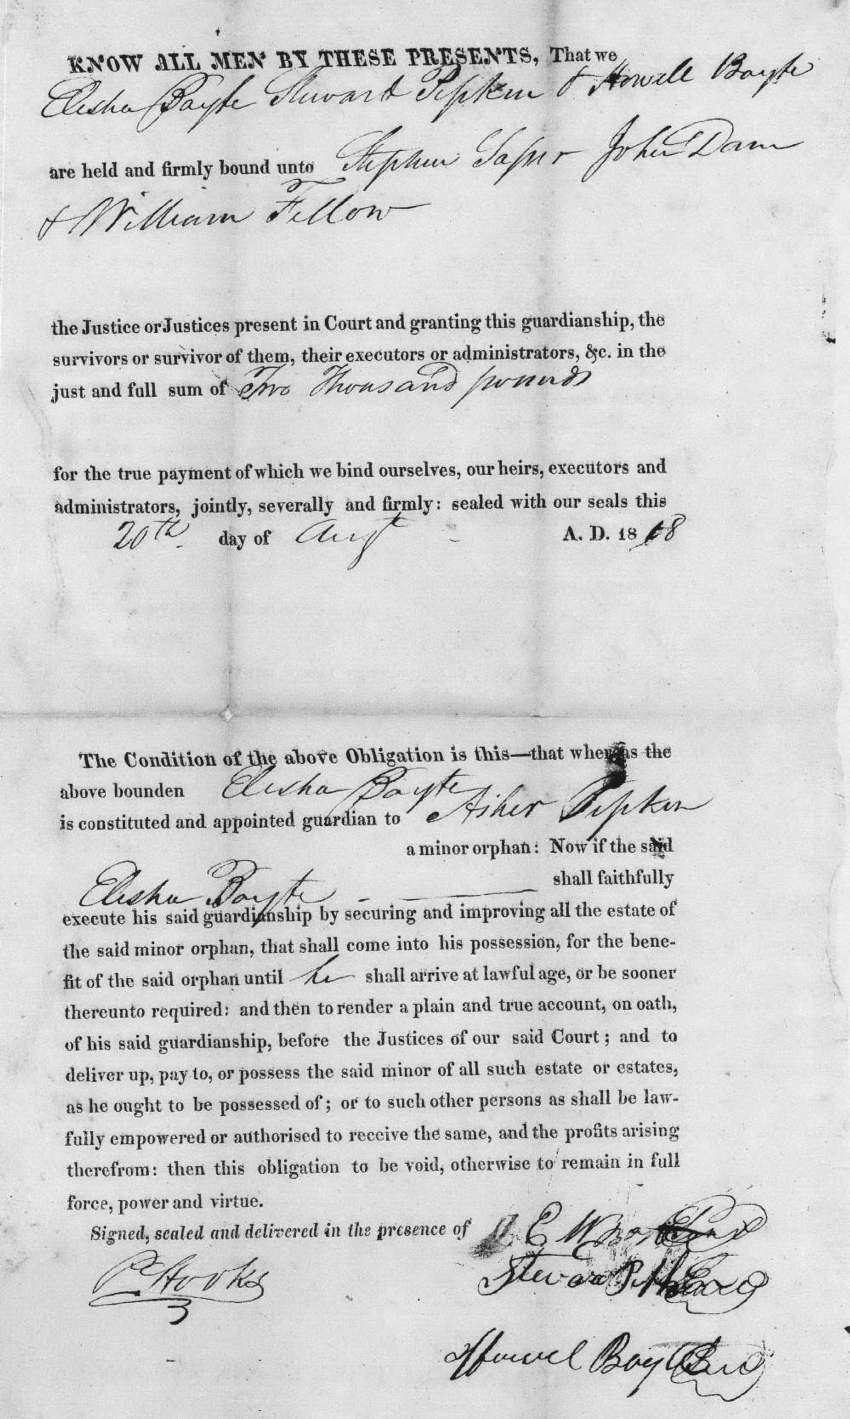 KNOW ALL MEN BY THESE PRESENTS, That we
Elisha Bayte Stewart Pipkin & Howell Bayte
are held and firmly bound unto Stephen John Dam
& William Fellow
the Justice or Justices present in Court and granting this guardianship, the
survivors or survivor of them, their executors or administrators, &c. in the
just and full sum of Two Thousand pounds
for the true payment of which we bind ourselves, our heirs, executors and
administrators, jointly, severally and firmly: sealed with our seals this
20th day of Augt A. D. 1818
The Condition of the above Obligation is this—that whereas the
above bounden Elisha Bayte
is constituted and appointed guardian to Asher Pipkin
a minor orphan: Now if the said
Elisha Bayte shall faithfully
execute his said guardianship by securing and improving all the estate of
the said minor orphan, that shall come into his possession, for the bene-
fit of the said orphan until he shall arrive at lawful age, or be sooner
thereunto required: and then to render a plain and true account, on oath,
of his said guardianship, before the Justices of our said Court; and to
deliver up, pay to, or possess the said minor of all such estate or estates,
as he ought to be possessed of; or to such other persons as shall be law-
fully empowered or authorised to receive the same, and the profits arising
therefrom: then this obligation to be void, otherwise to remain in full
force, power and virtue.
Signed, sealed and delivered in the presence of
P Hooks
Howel Bayt